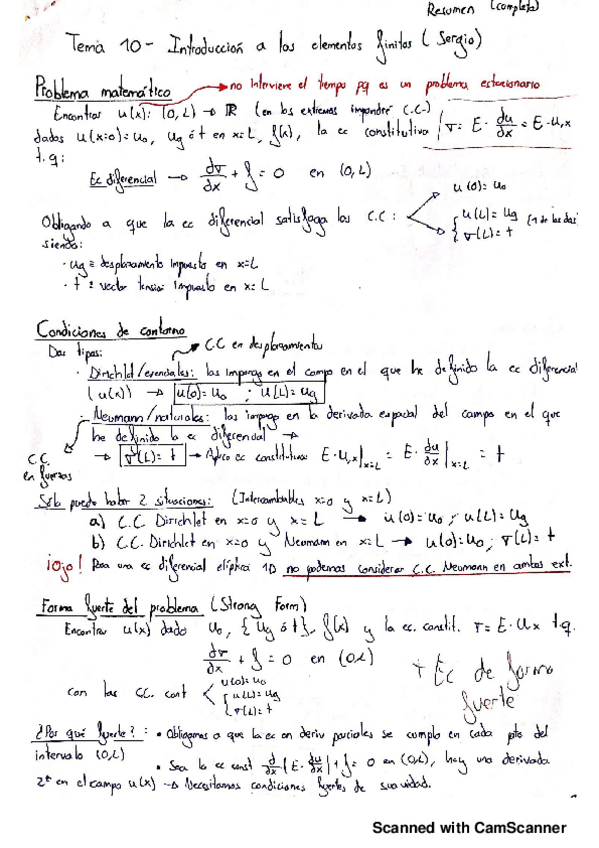 Resumen (completo)
Tema 10 - Introducción a los elementos finitos (Sergio)
Problema matemático → no interviene el tiempo pq es un problema estacionario
Encontrar u(x): (0,L) → ℝ (en los extremos impondré C.C.)
dados u(x=0)=u₀, ug ó t en x=L, f(x), la ec constitutiva / σ = E · du/dx = E·u,x
t.q:
Ec diferencial → dσ/dx + f = 0 en (0,L)
Obligando a que la ec diferencial satisfaga las C.C: u(0)=u₀ { u(L)=ug σ(L)=t (1 de las dos)
siendo:
· ug ≡ desplazamiento impuesto en x=L
· t ≡ vector tensión impuesto en x=L
Condiciones de contorno
Dos tipos: C.C en desplazamientos
· Dirichlet/esenciales: las impongo en el campo en el que he definido la ec diferencial
(u(x)) → u(0)=u₀ ; u(L)=ug
· Neumann/naturales: las impongo en la derivada espacial del campo en el que
he definido la ec diferencial →
C.C. en fuerzas → σ(L)=t → Aplico ec constitutiva E·u,x|x=L = E· du/dx|x=L = t
Sólo puede haber 2 situaciones: (Intercambiables x=0 y x=L)
a) C.C. Dirichlet en x=0 y x=L → u(0)=u₀ ; u(L)=ug
b) C.C. Dirichlet en x=0 y Neumann en x=L → u(0)=u₀ ; σ(L)=t
¡Ojo! Para una ec diferencial elíptica 1D no podemos considerar C.C. Neumann en ambos ext.
Forma fuerte del problema (Strong Form)
Encontrar u(x) dado u₀, {ug ó t}, f(x) y la ec. constit. σ=E·u,x t.q.
dσ/dx + f = 0 en (0,L)
con las CC. cont u(0)=u₀ { u(L)=ug σ(L)=t
↑ Ec de forma
fuerte
¿Por qué fuerte?: • Obligamos a que la ec en deriv parciales se cumpla en cada pto del
intervalo (0,L)
• Sea la ec const d/dx (E· du/dx) + f = 0 en (0,L), hay una derivada
2ª en el campo u(x) → Necesitamos condiciones fuertes de suavidad.
Scanned with CamScanner